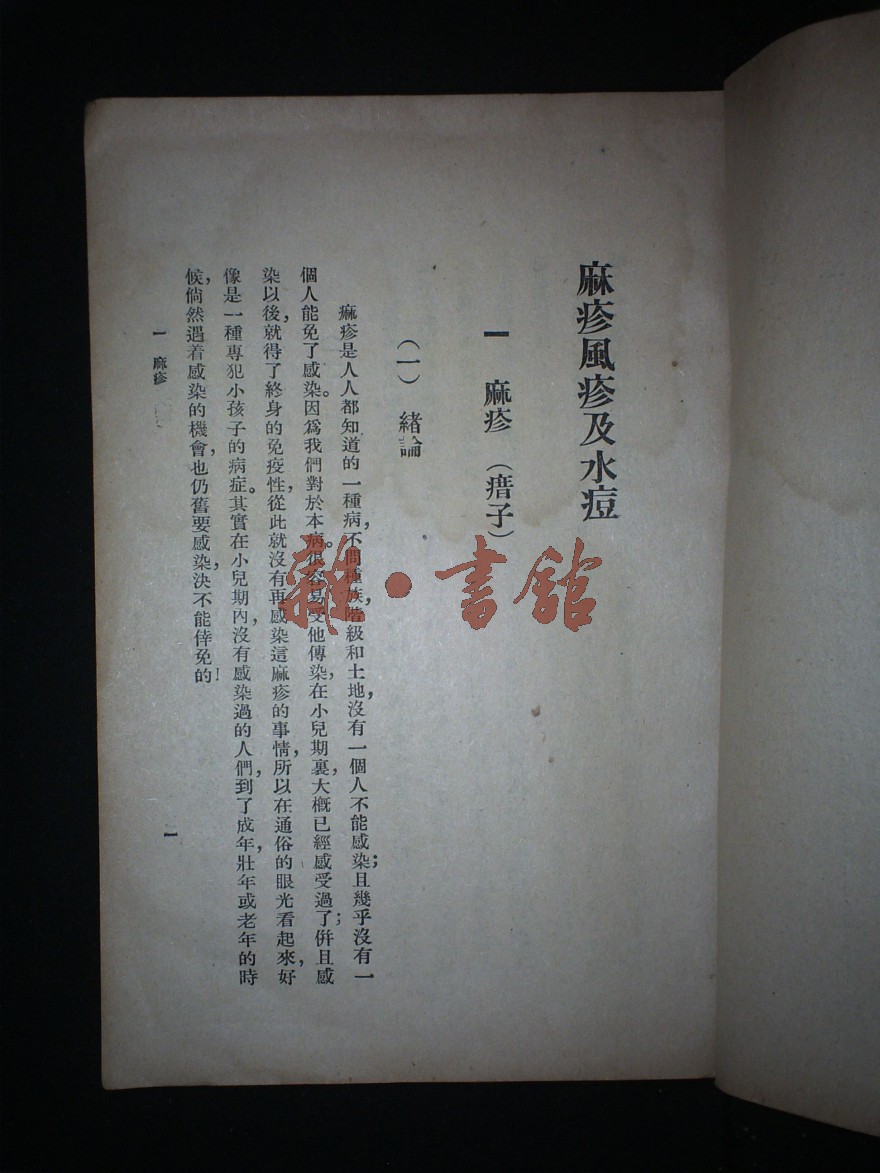 麻疹風疹及水痘
一　麻疹（瘄子）
（一）緒論
痲疹是人人都知道的一種病，不問種族，階級和土地，沒有一個人不能感染；且幾乎沒有一
個人能免了感染。因爲我們對於本病。很容易受他傳染，在小兒期裏，大概已經感受過了；倂且感
染以後，就得了終身的免疫性，從此就沒有再感染這麻疹的事情，所以在通俗的眼光看起來，好
像是一種專犯小孩子的病症。其實在小兒期內，沒有感染過的人們，到了成年，壯年或老年的時
候，倘然遇着感染的機會，也仍舊要感染，決不能倖免的！
一　麻疹
一
雜·書館